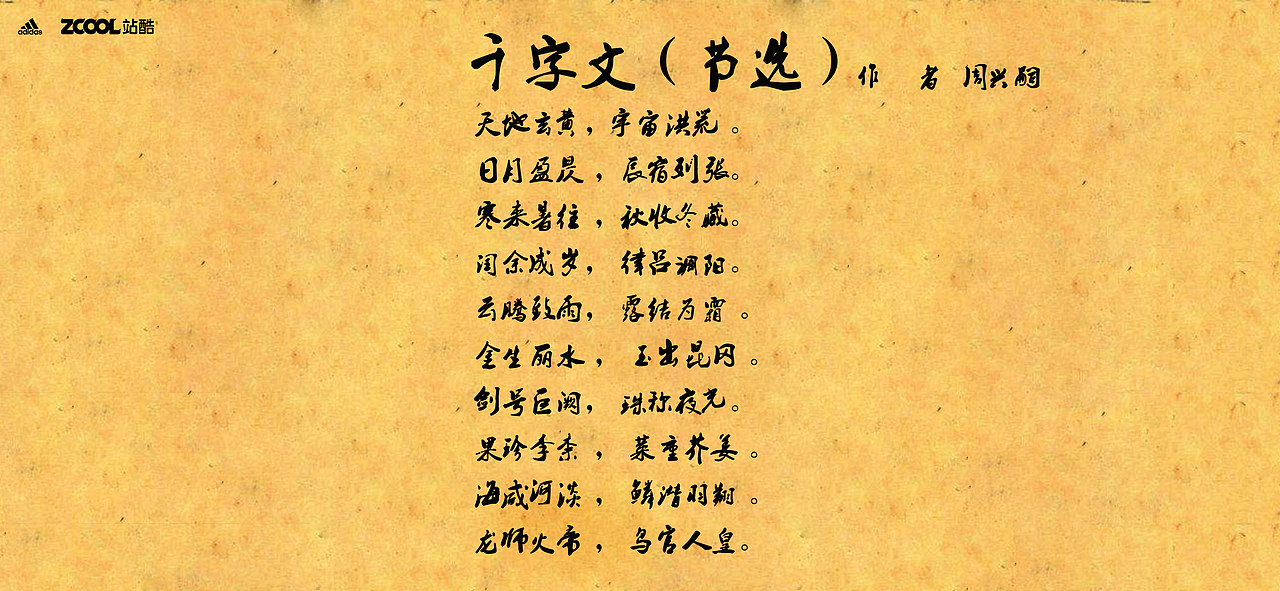 adidas ZCOOL站酷
千字文（节选）作 者 周兴嗣
天地玄黄，宇宙洪荒。
日月盈昃，辰宿列张。
寒来暑往，秋收冬藏。
闰余成岁，律吕调阳。
云腾致雨，露结为霜。
金生丽水，玉出昆冈。
剑号巨阙，珠称夜光。
果珍李柰，菜重芥姜。
海咸河淡，鳞潜羽翔。
龙师火帝，鸟官人皇。